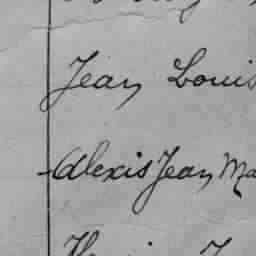 Jean Louis
Alexis Jean Ma